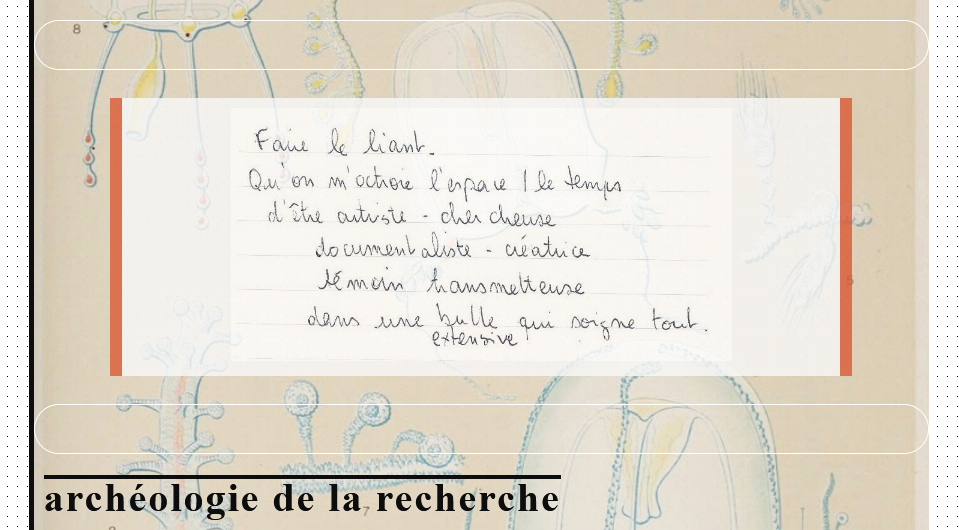 8
Faire le liant.
Qu'on m'octroie l'espace / le temps
d'être artiste - chercheuse
documentaliste - créatrice
témoin transmetteuse
dans une bulle qui soigne tout.
extensive
5
archéologie de la recherche
7